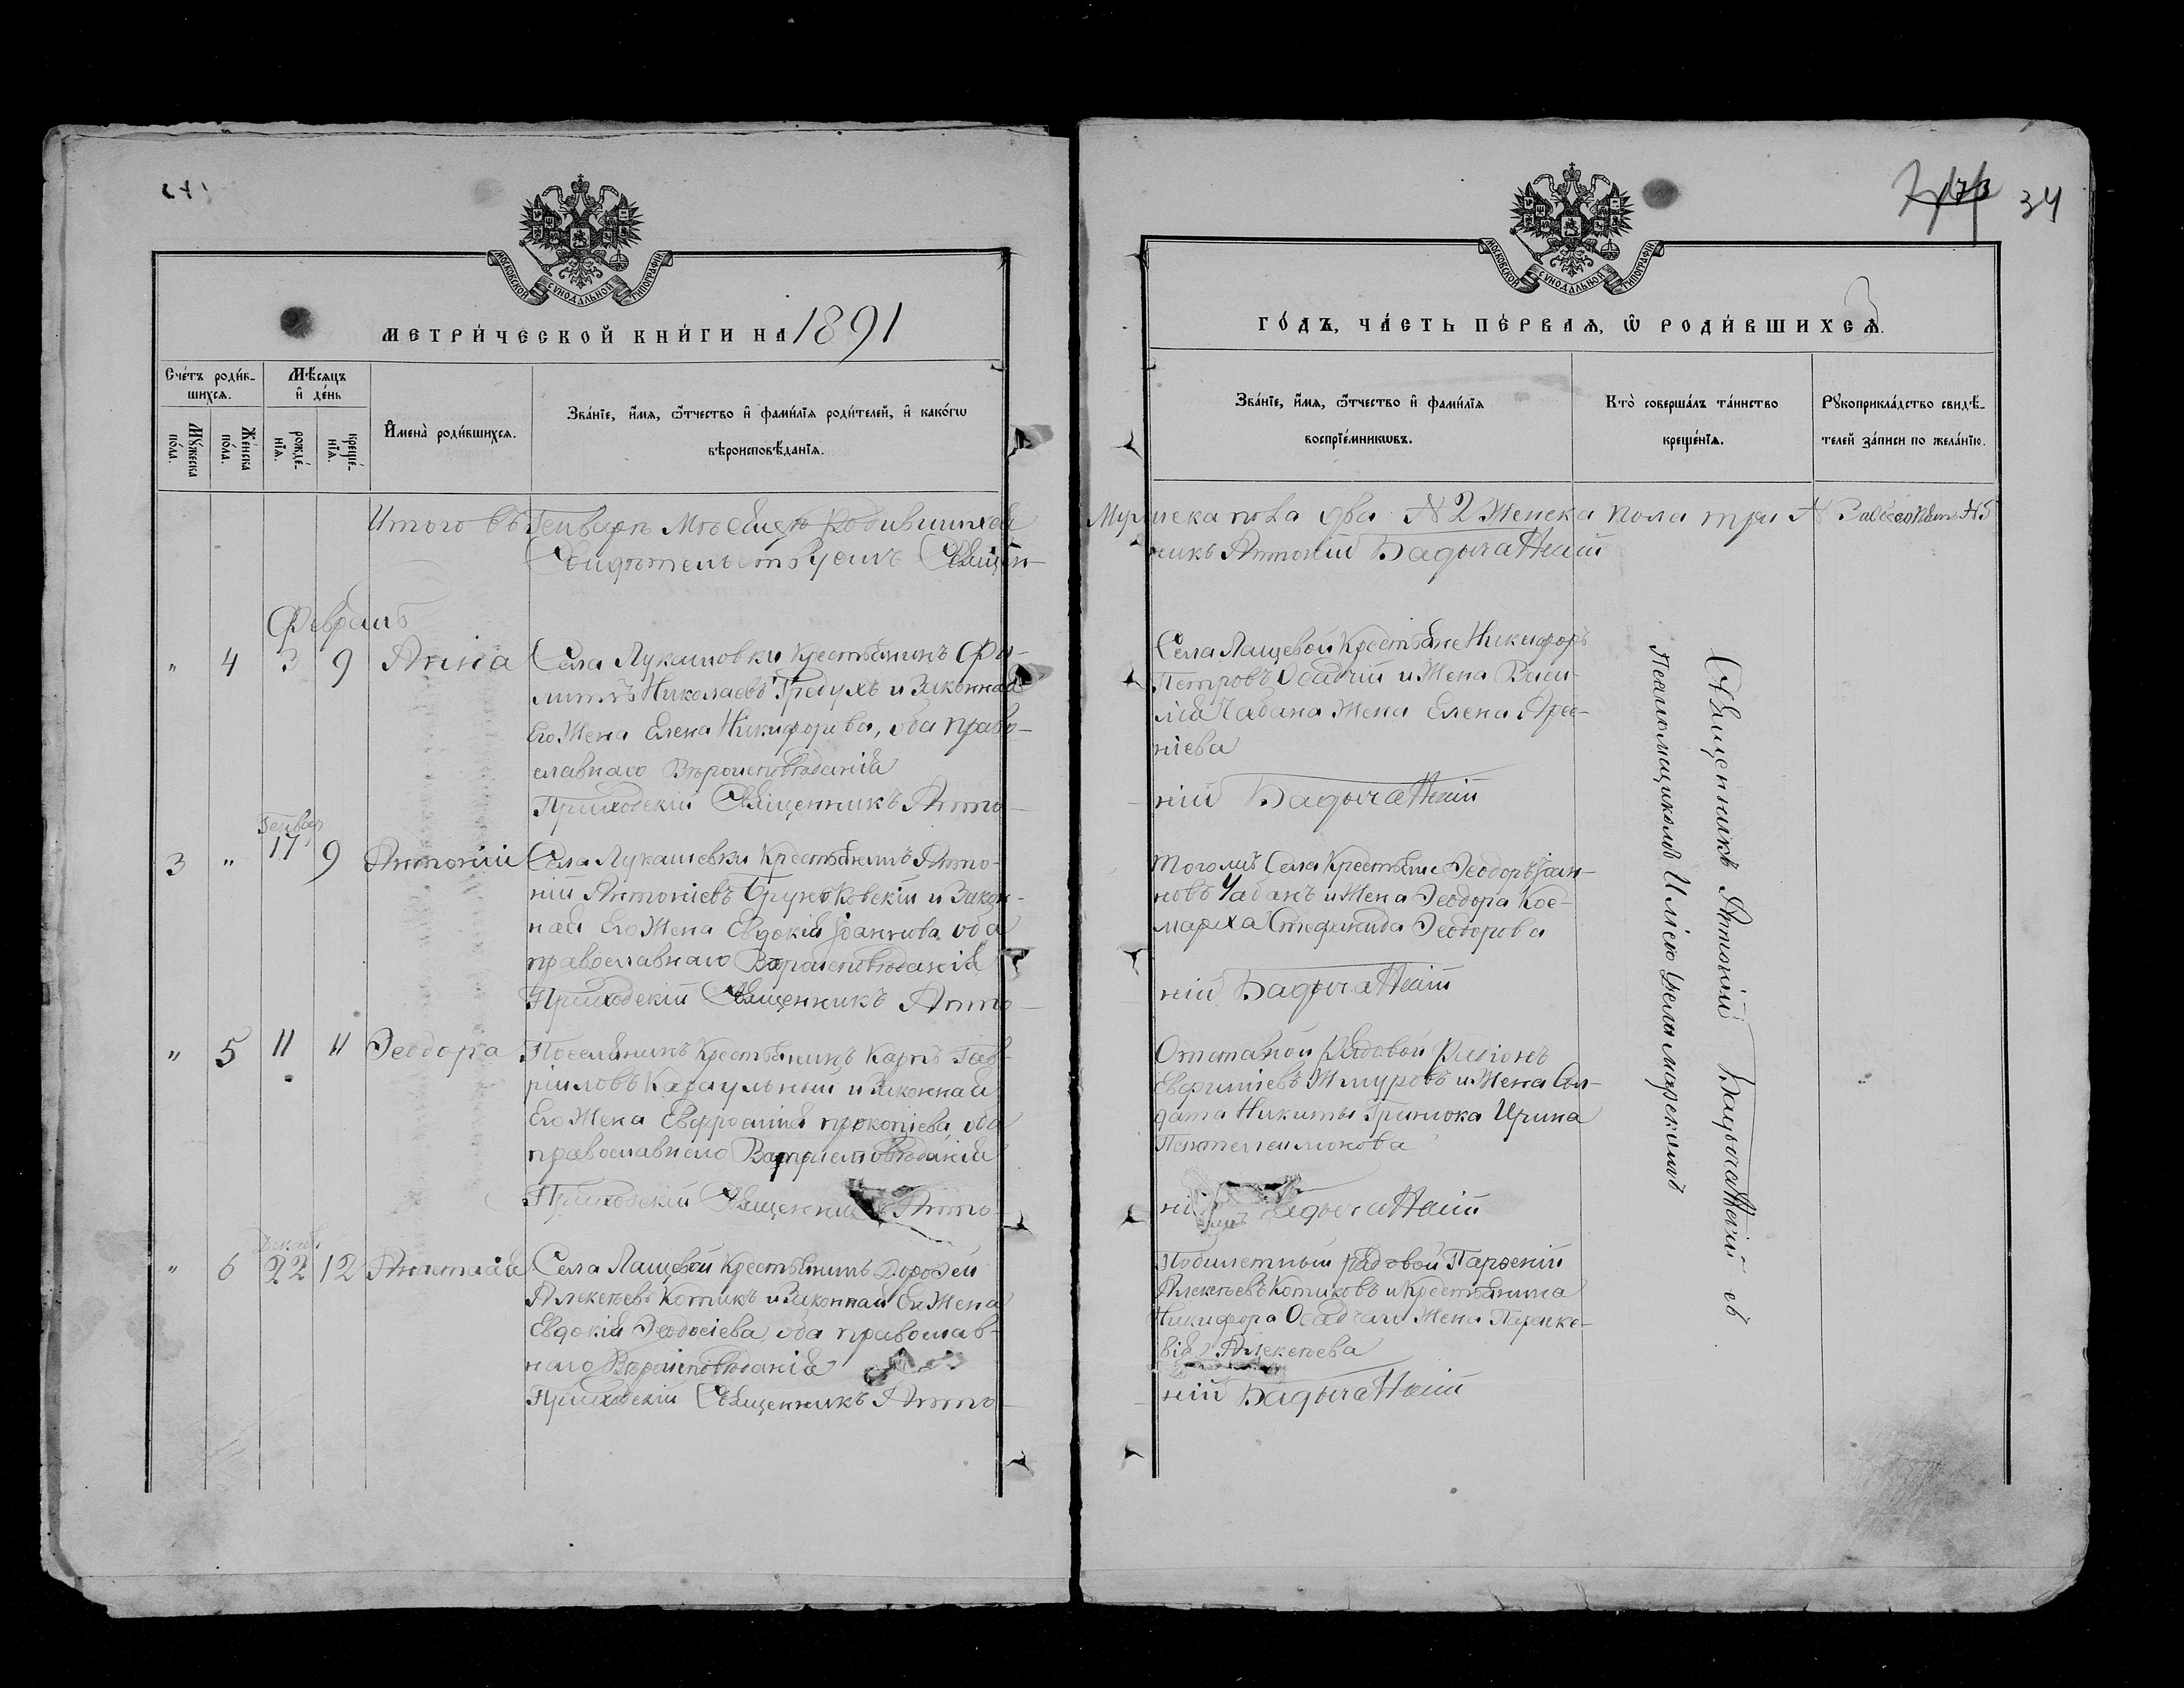 34
МОСКОВСКОЙ СУНОДАЛЬНОЙ ТИПОГРАФІИ
МОСКОВСКОЙ СУНОДАЛЬНОЙ ТИПОГРАФІИ
МЕТРИ́ЧЕСКОЙ КНИ́ГИ НА 1891
ГО́ДЪ, ЧА́СТЬ ПЕ́РВАЯ, Ѡ РОДИ́ВШИХСЯ.
3
Сче́тъ роди́в-
шихся.
Му́жеска
по́ла.
Же́нска
по́ла.
Мѣ́сяцъ
и де́нь
рожде́-
нїя.
креще́-
нїя.
И҆мена̀ роди́вшихся.
Зва́нїе, и҆́мя, ѻ҆́тчество и҆ фами́лїя роди́телей, и҆ како́гѡ
вѣроисповѣ́данїя.
Зва́нїе, и҆́мя, ѻ҆́тчество и҆ фами́лїя
воспрїе́мникѡвъ.
Кто̀ соверша́лъ та́инство
креще́нїя.
Рꙋкоприкла́дство свидѣ́-
телей за́писи по жела́нїю.
Итого въ Генваре Месяце Родившихся
Мужеска пола два № 2 Женска пола три №
Свидетельствуетъ Священ-
никъ Антоній
Февраль
" 4 3 9 Анна
Села Лукашовки Крестьянинъ Фи-
липпъ Николаевъ Гредухъ и Законная
Его Жена Елена Никифорова, оба право-
славнаго Вѣроисповѣданія
Приходскій Священникъ Анто-
Села Лащевой Крестьяне Никифоръ
Петровъ Осадчій и Жена Васи-
лія Чабана Жена Елена Арсе-
ніева
ній
Генвар
3 " 17 9 Антоній
Села Лукашевки Крестьянинъ Анто-
ній Антоніевъ и Закон-
ная Его Жена Евдокія Іоаннова оба
православнаго Вѣроисповѣданія
Приходскій Священникъ Анто-
Тогожъ Села Крестьяне Ѳеодоръ Іоан-
новъ Чабанъ и Жена Ѳеодора Кос-
Стефанида Ѳеодорова
ній
" 5 11 11 Ѳеодора
Поселянинъ Крестьянинъ Карпъ Гав-
ріиловъ Караульный и Законная
Его Жена Евфросинія Прокопіева оба
православнаго Вѣроисповѣданія
Приходскій Священникъ Анто-
Отставной Рядовой Родіонъ
Евфиміевъ Жмуровъ и Жена Сол-
дата Никиты Гринюка Ирина
Пантелеимонова
Декабр
" 6 22 12 Анастасія
Села Лащевой Крестьянинъ Дорофей
Алексѣевъ Котикъ и Законная Его Жена
Евдокія Ѳеодосіева оба православ-
наго Вѣроисповѣданія
Приходскій Священникъ Анто-
Побилетный Рядовой Парѳеній
Алексѣевъ Котиковъ и Крестьянина
Никифора Осадчаго Жена Параске-
вія Алексѣева
ній
Священникъ Антоній съ
Псаломщикомъ